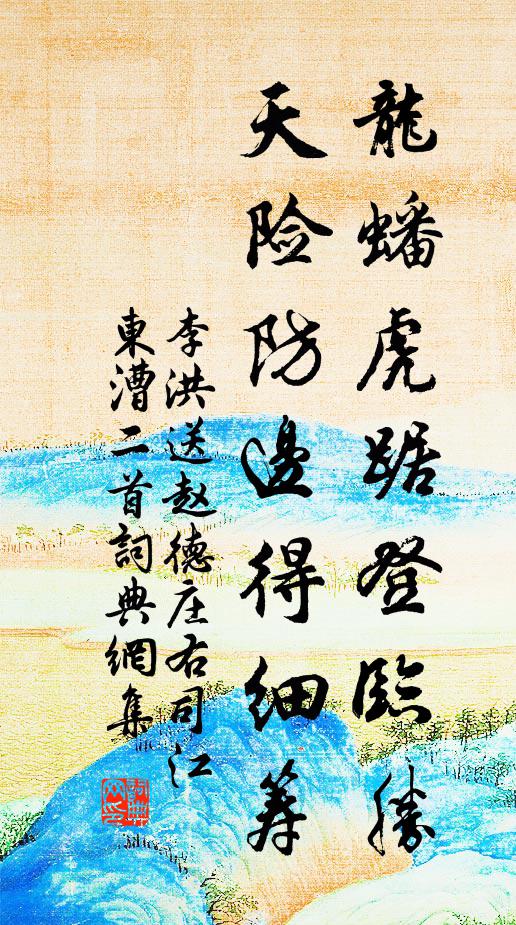 龍蟠虎踞登臨勝
天险防邊得細筹
李洪送赵德庄右司江
東漕二首詞典網集